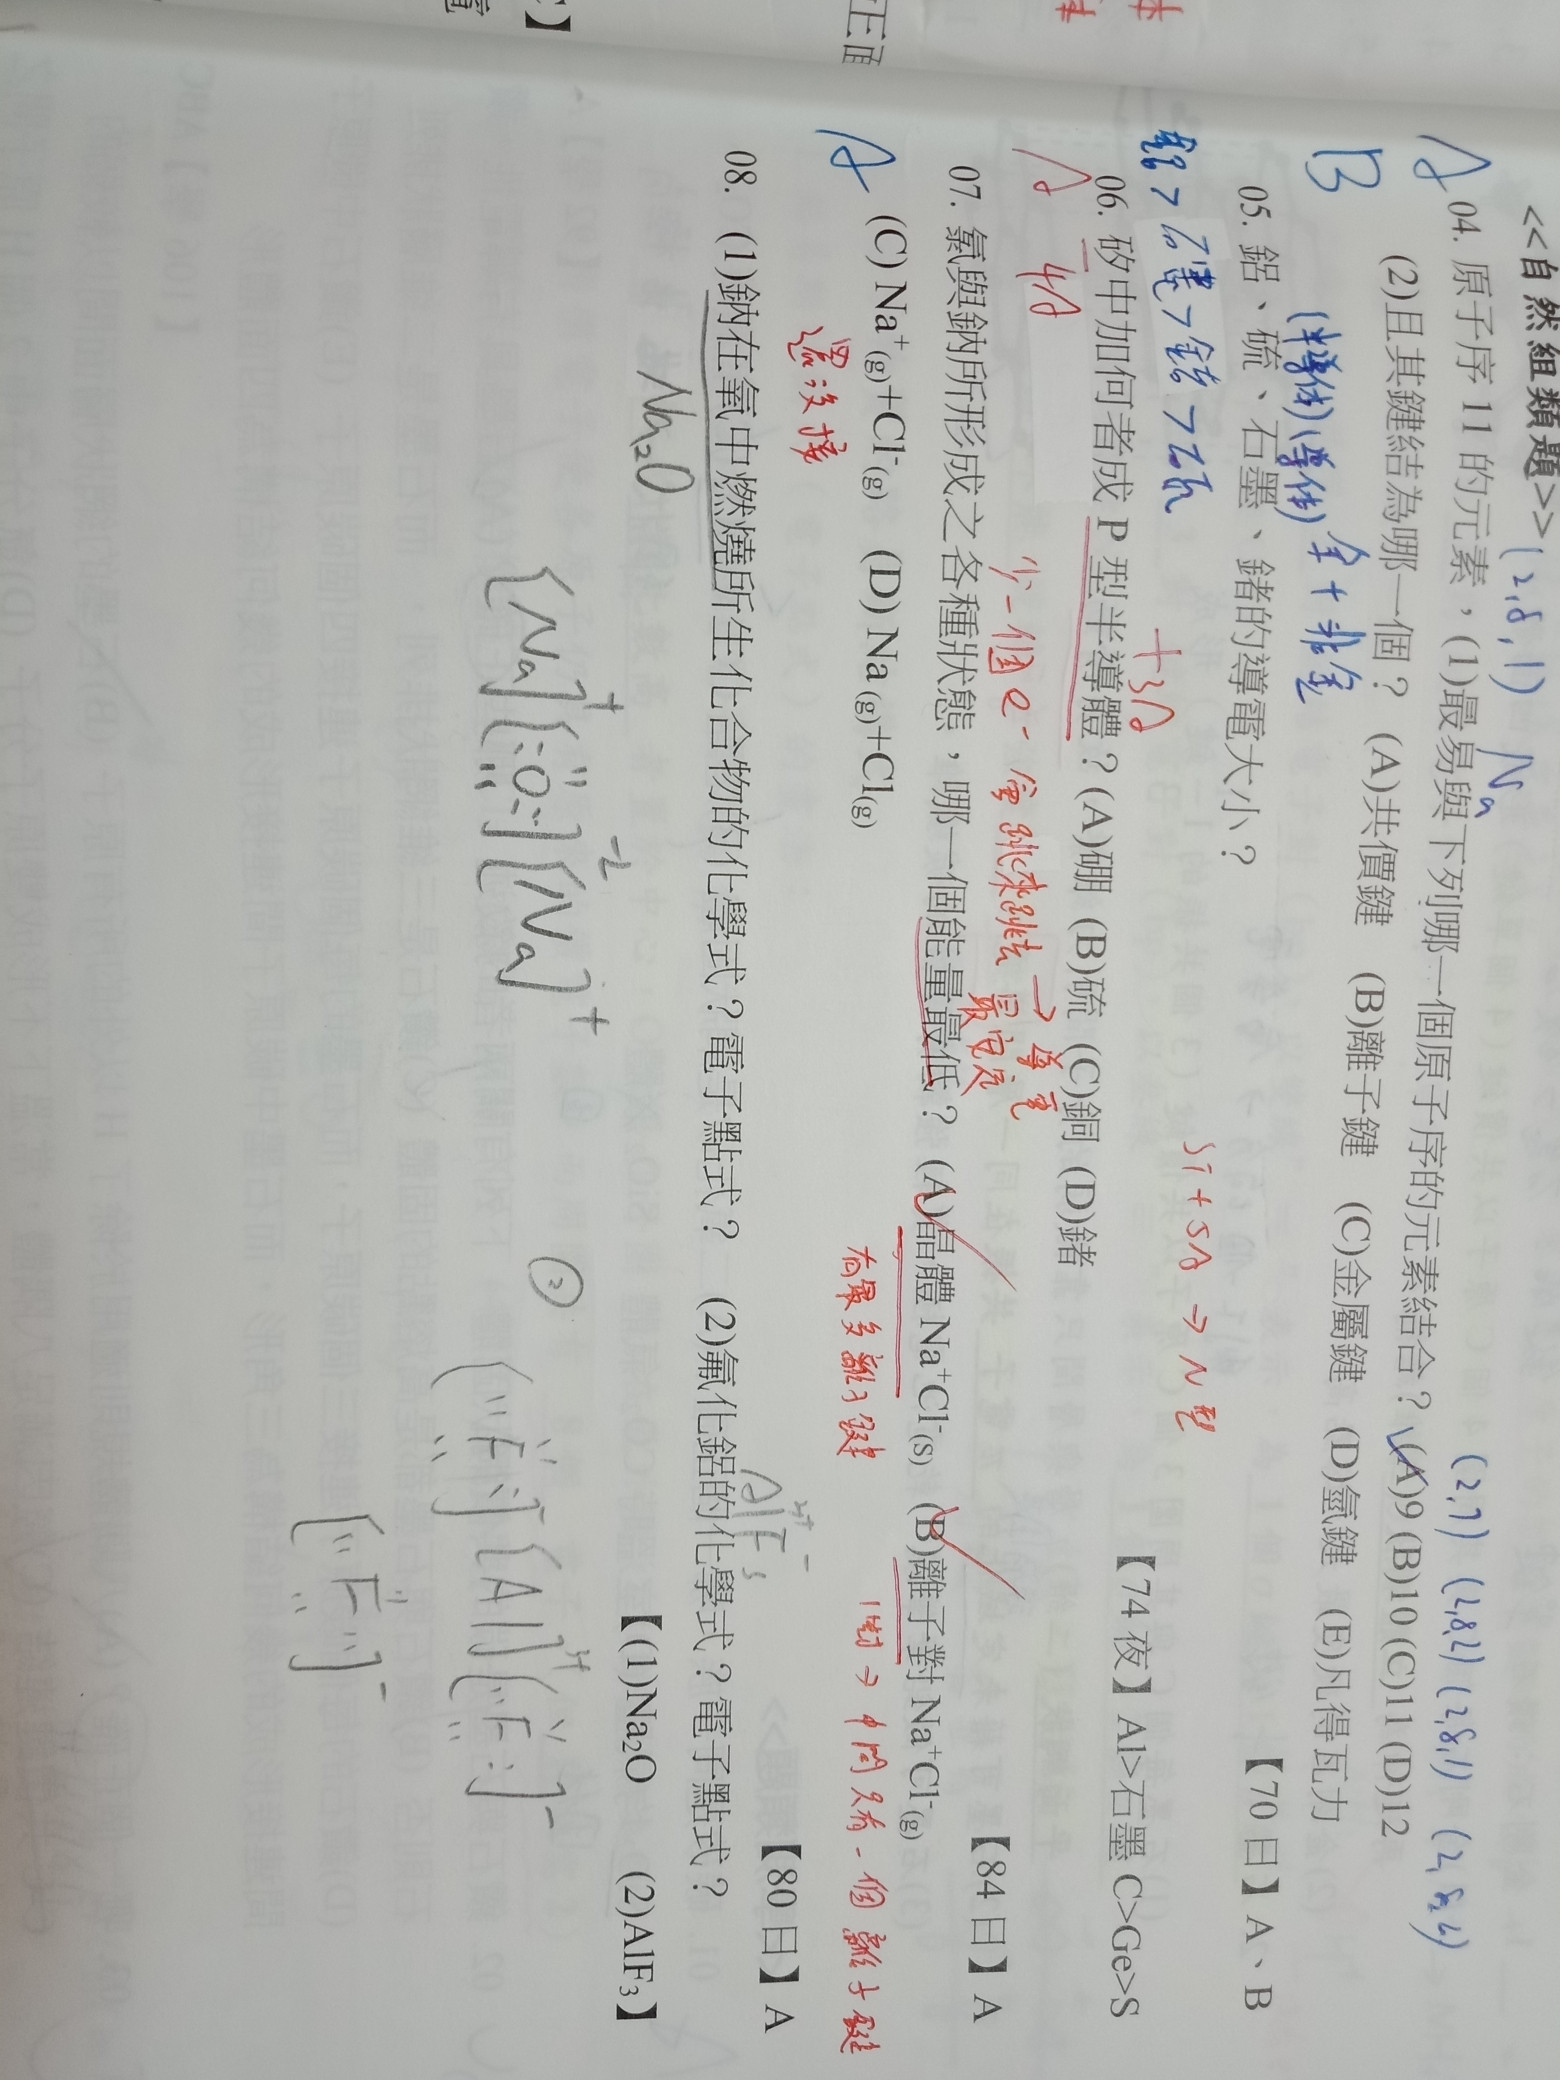 <<自然組類題>> (2,8,1) Na (2,7) (2,8,2) (2,8,1) (2,8,2)
A 04. 原子序 11 的元素,(1)最易與下列哪一個原子序的元素結合?(A)9 (B)10 (C)11 (D)12
B (2)且其鍵結為哪一個? (A)共價鍵 (B)離子鍵 (C)金屬鍵 (D)氫鍵 (E)凡得瓦力
(半導体)(導体) 金+非金 【70 日】A、B
05. 鋁、硫、石墨、鍺的導電大小?
鋁>石墨>鍺>硫 +3A Si+5A→N型 【74 夜】Al>石墨 C>Ge>S
06. 矽中加何者成 P 型半導體?(A)硼 (B)硫 (C)銅 (D)鍺
A 4A 少一個e- 會跳來跳去→導電 最安定 【84 日】A
07. 氯與鈉所形成之各種狀態,哪一個能量最低? (A)晶體 Na⁺Cl⁻(S) (B)離子對 Na⁺Cl⁻(g)
A (C) Na⁺(g)+Cl⁻(g) (D) Na(g)+Cl(g)
還沒接 有最多離子鍵 1對→中間只有一個離子鍵
【80 日】A
08. (1)鈉在氧中燃燒所生化合物的化學式?電子點式? (2)氟化鋁的化學式?電子點式?
Na₂O AlF₃
【(1)Na₂O (2)AlF₃】
[Na]⁺[:O:]⁻²[Na]⁺ ② [:F:]⁻[Al]³⁺[:F:]⁻
[:F:]⁻